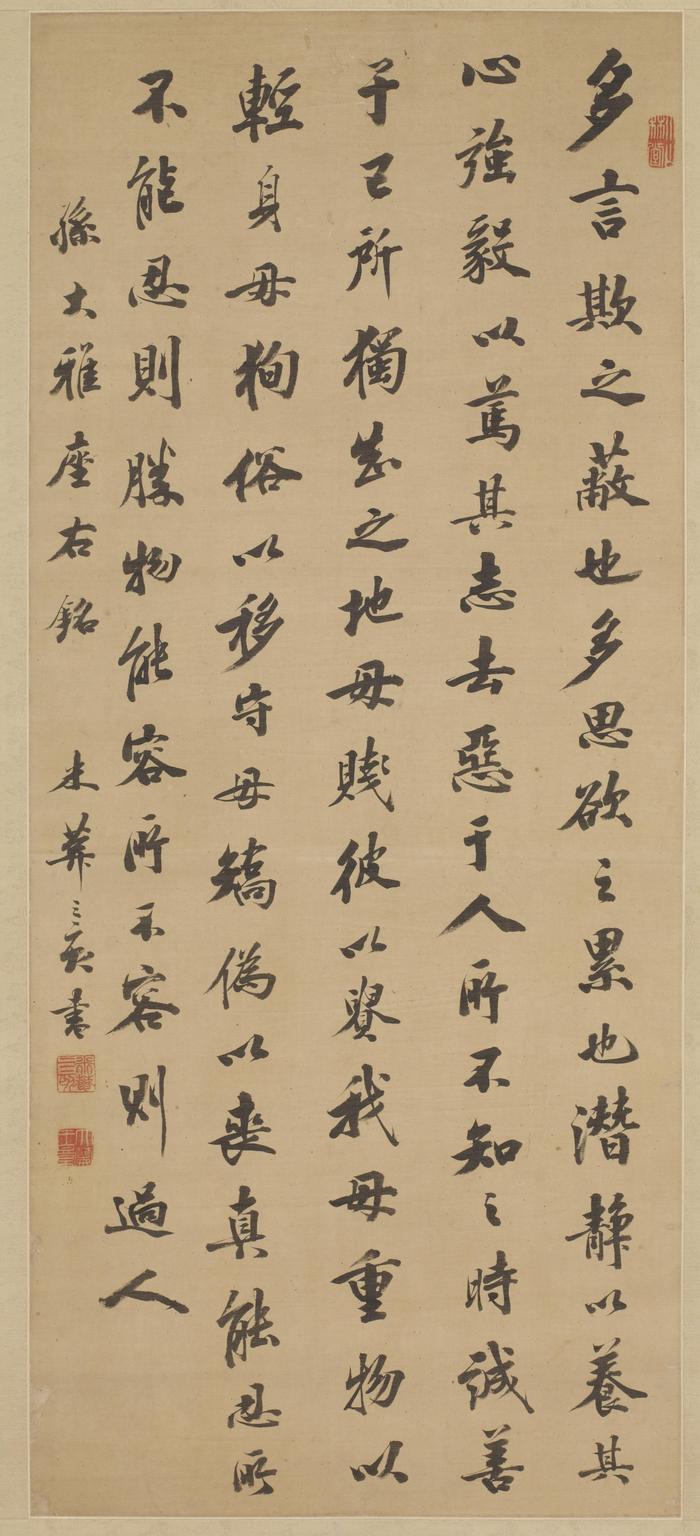 多言欺之蔽也多思欲之累也潛靜以養其
心強毅以篤其志去惡于人所不知之時誠善
于己所獨知之地毋賤彼以賢我毋重物以
輕身毋狥俗以移守毋矯偽以喪真能忍所
不能忍則勝物能容所不容則過人
孫大雅座右銘 米葊三亥書